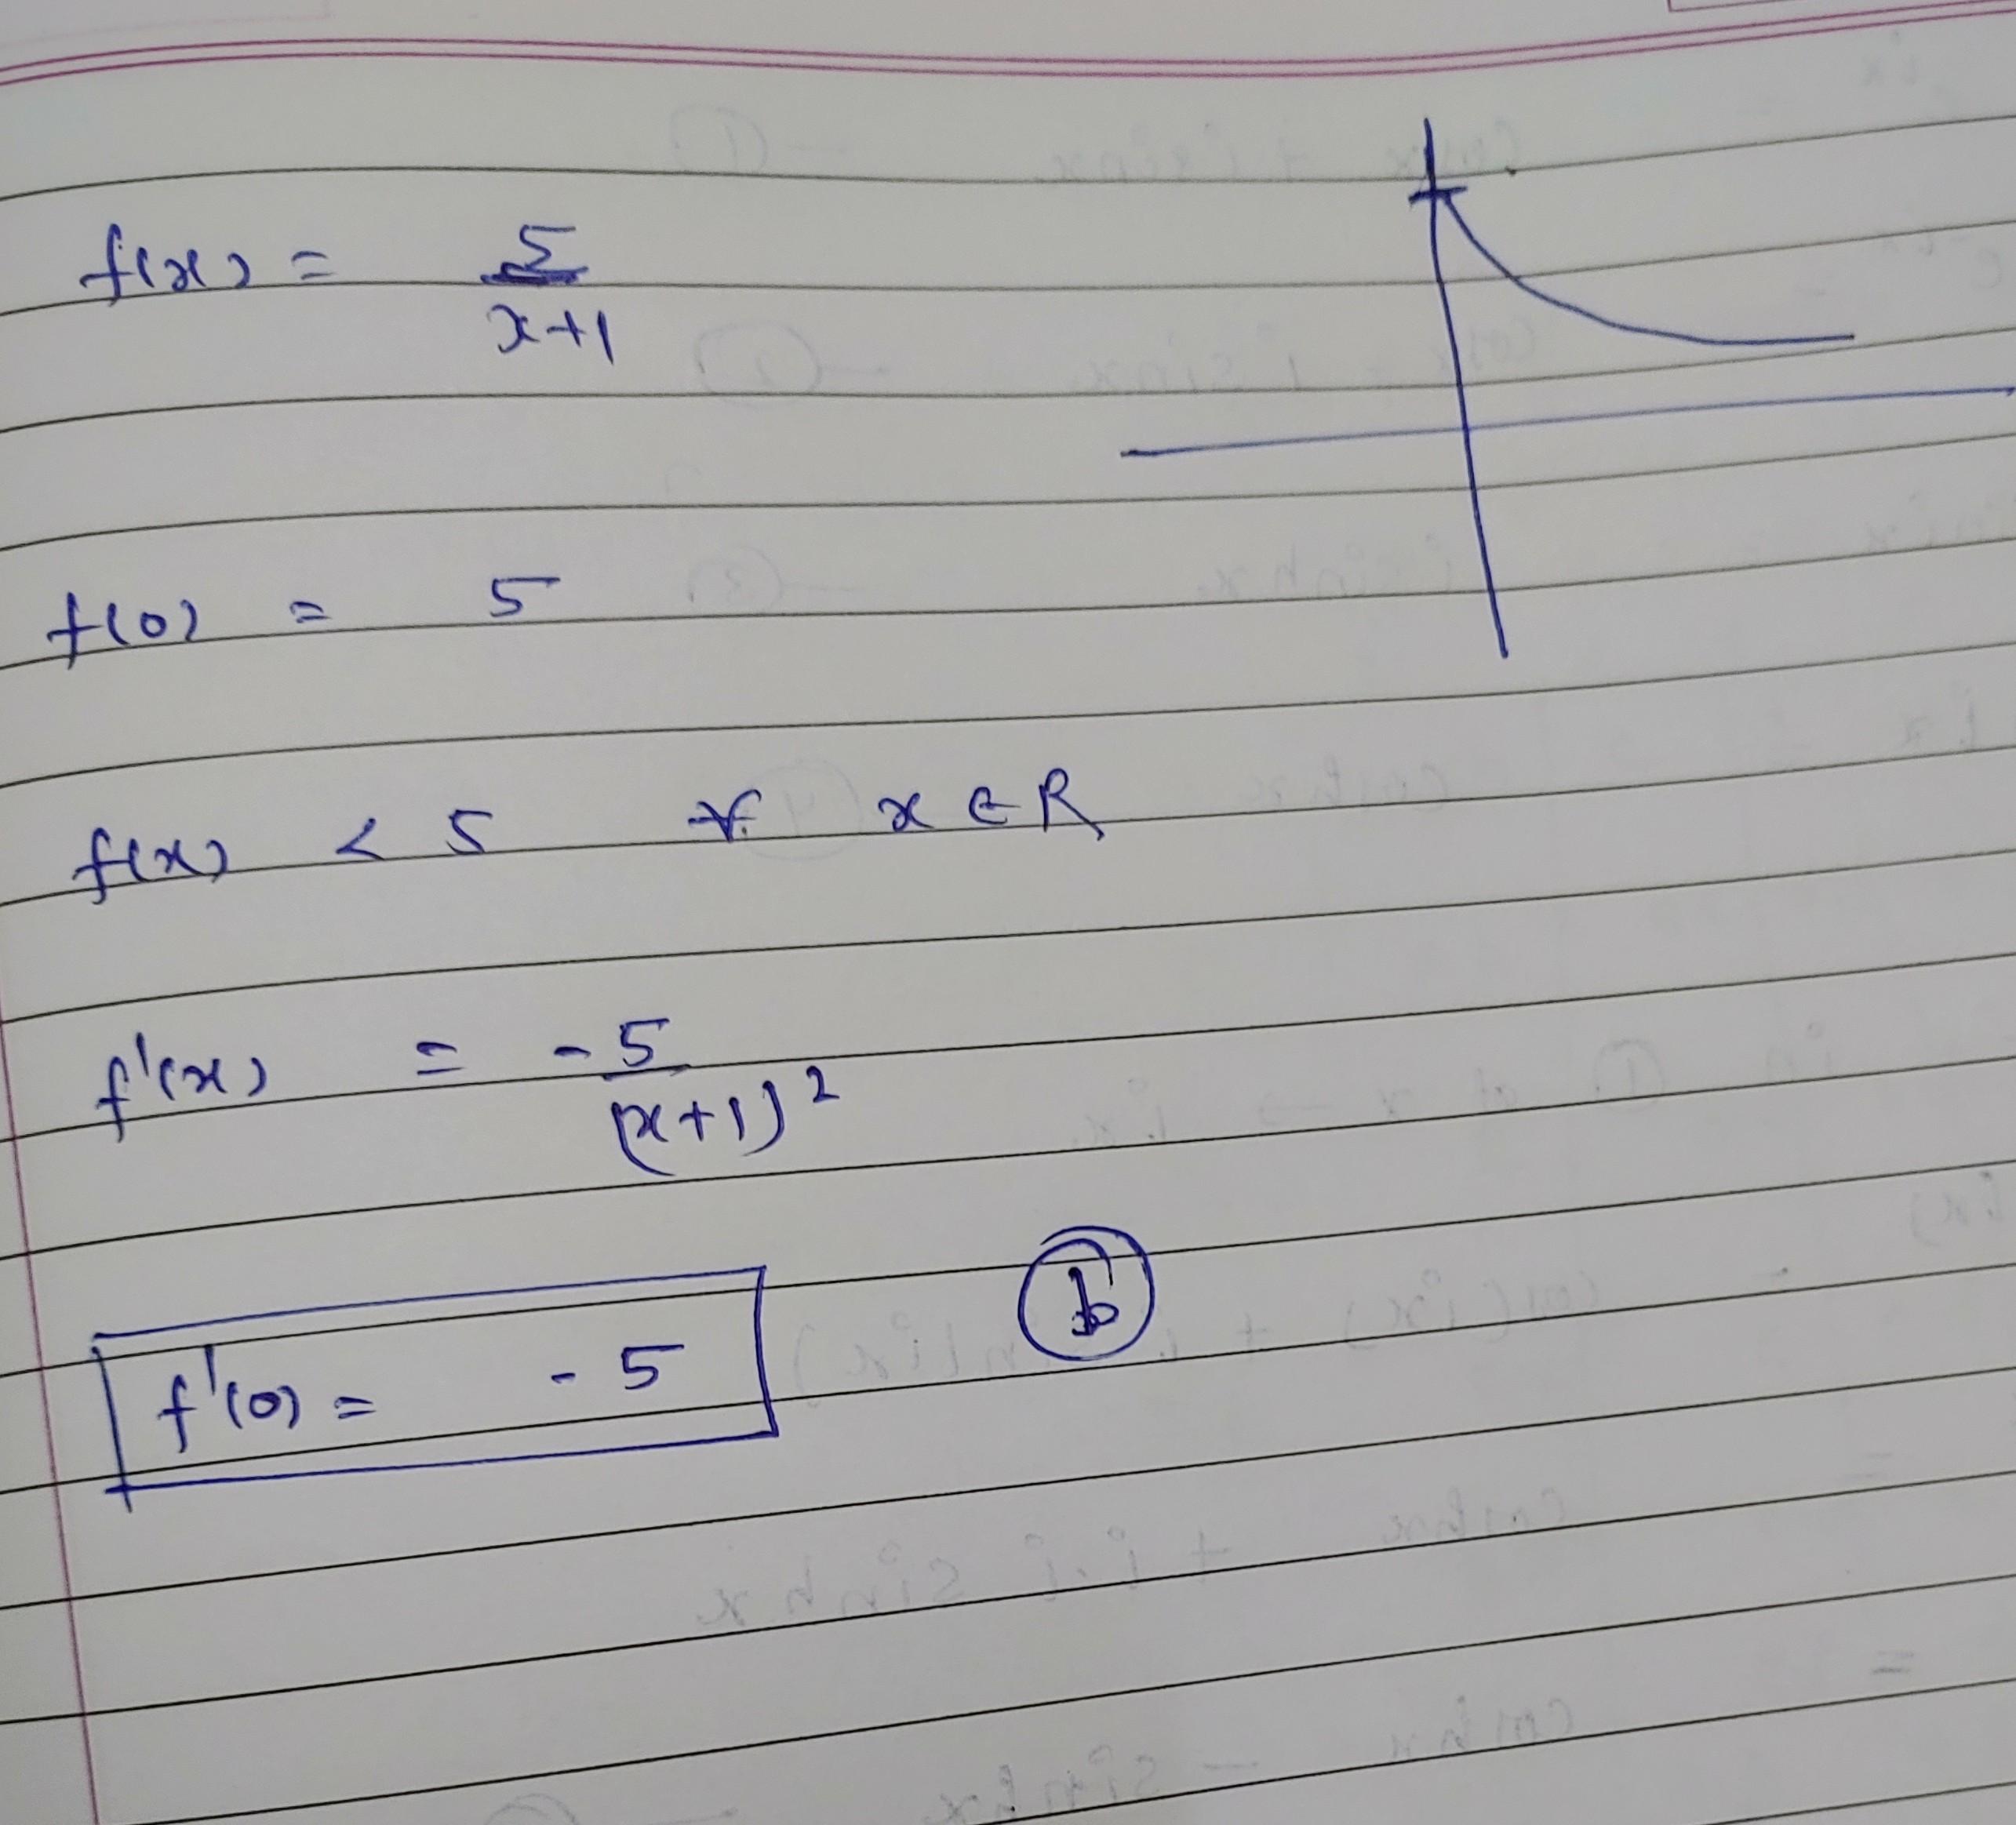 f(x) = 5/(x+1)
f(0) = 5
f(x) < 5 ∀ x ∈ R
f'(x) = -5/(x+1)²
f'(0) = -5 b